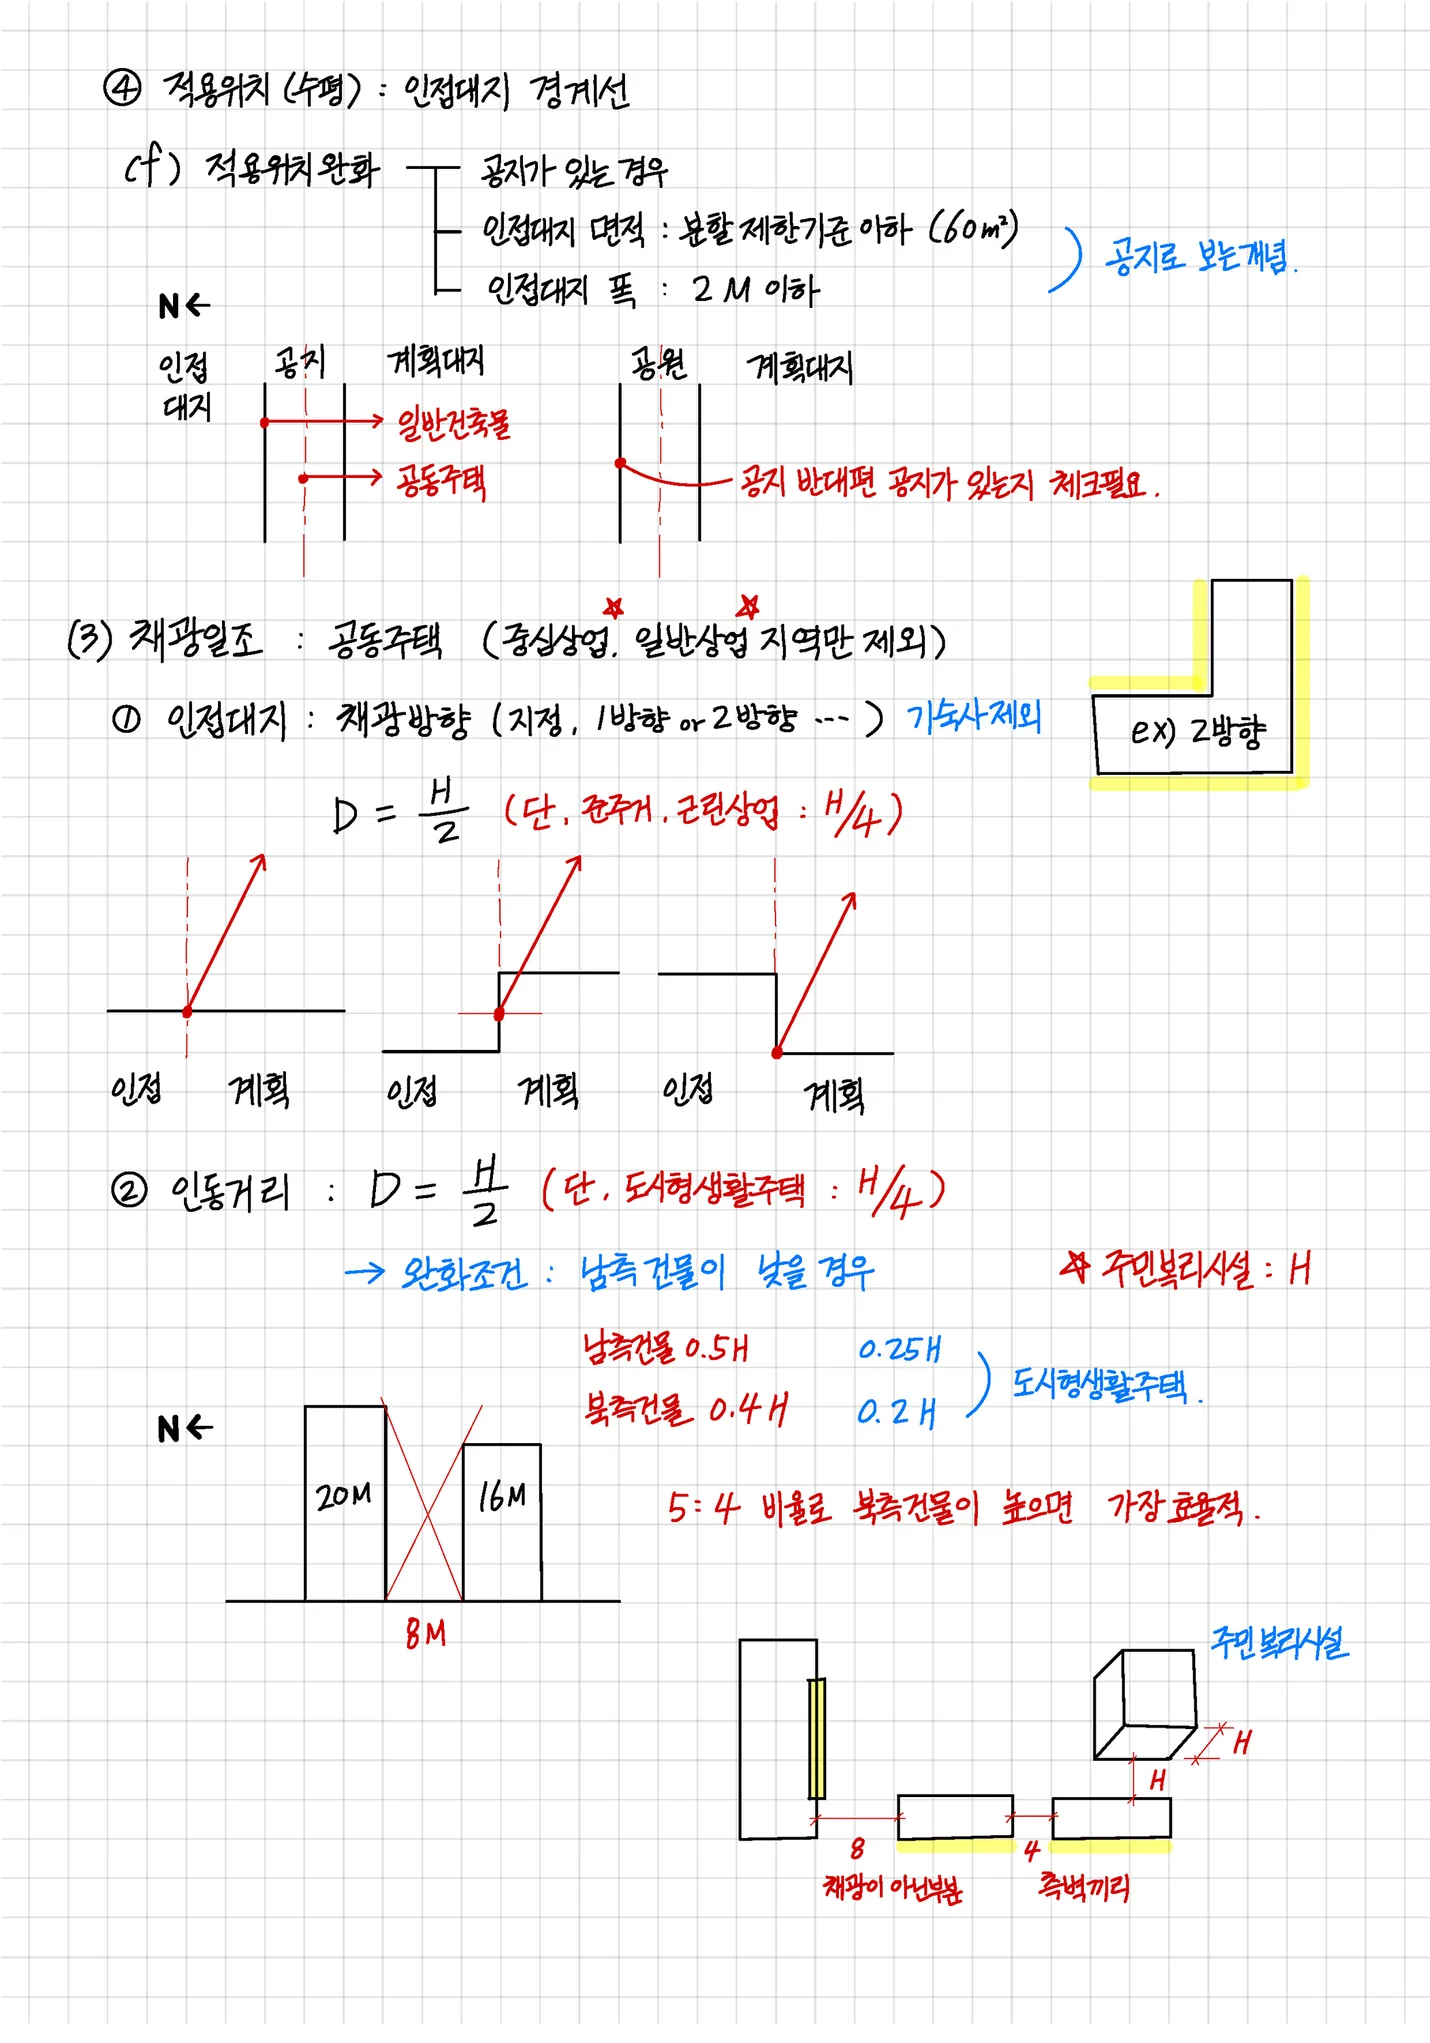 ④ 적용위치 (수평) : 인접대지 경계선
(f) 적용위치완화 공지가 있는 경우
인접대지 면적 : 분할제한기준이하 (60㎡)
인접대지 폭 : 2M 이하
공지로 보는개념.
N←
인접대지 공지 계획대지
일반건축물
공동주택
공원 계획대지
공지 반대편 공지가 있는지 체크필요.
(3) 채광일조 : 공동주택 (중심상업. 일반상업 지역만 제외)
① 인접대지 : 채광방향 (지정, 1방향 or 2방향 ...) 기숙사제외
ex) 2방향
D = H/2 (단, 준주거, 근린상업 : H/4)
인접 계획 인접 계획 인접 계획
② 인동거리 : D = H/2 (단, 도시형생활주택 : H/4)
→ 완화조건 : 남측건물이 낮을 경우 ☆ 주민복리시설 : H
남측건물 0.5H 0.25H
북측건물 0.4H 0.2H
도시형생활주택.
N←
20M 16M
8M
5:4 비율로 북측건물이 높으면 가장효율적.
주민복리시설
H
H
8 4
채광이 아닌부분 측벽끼리